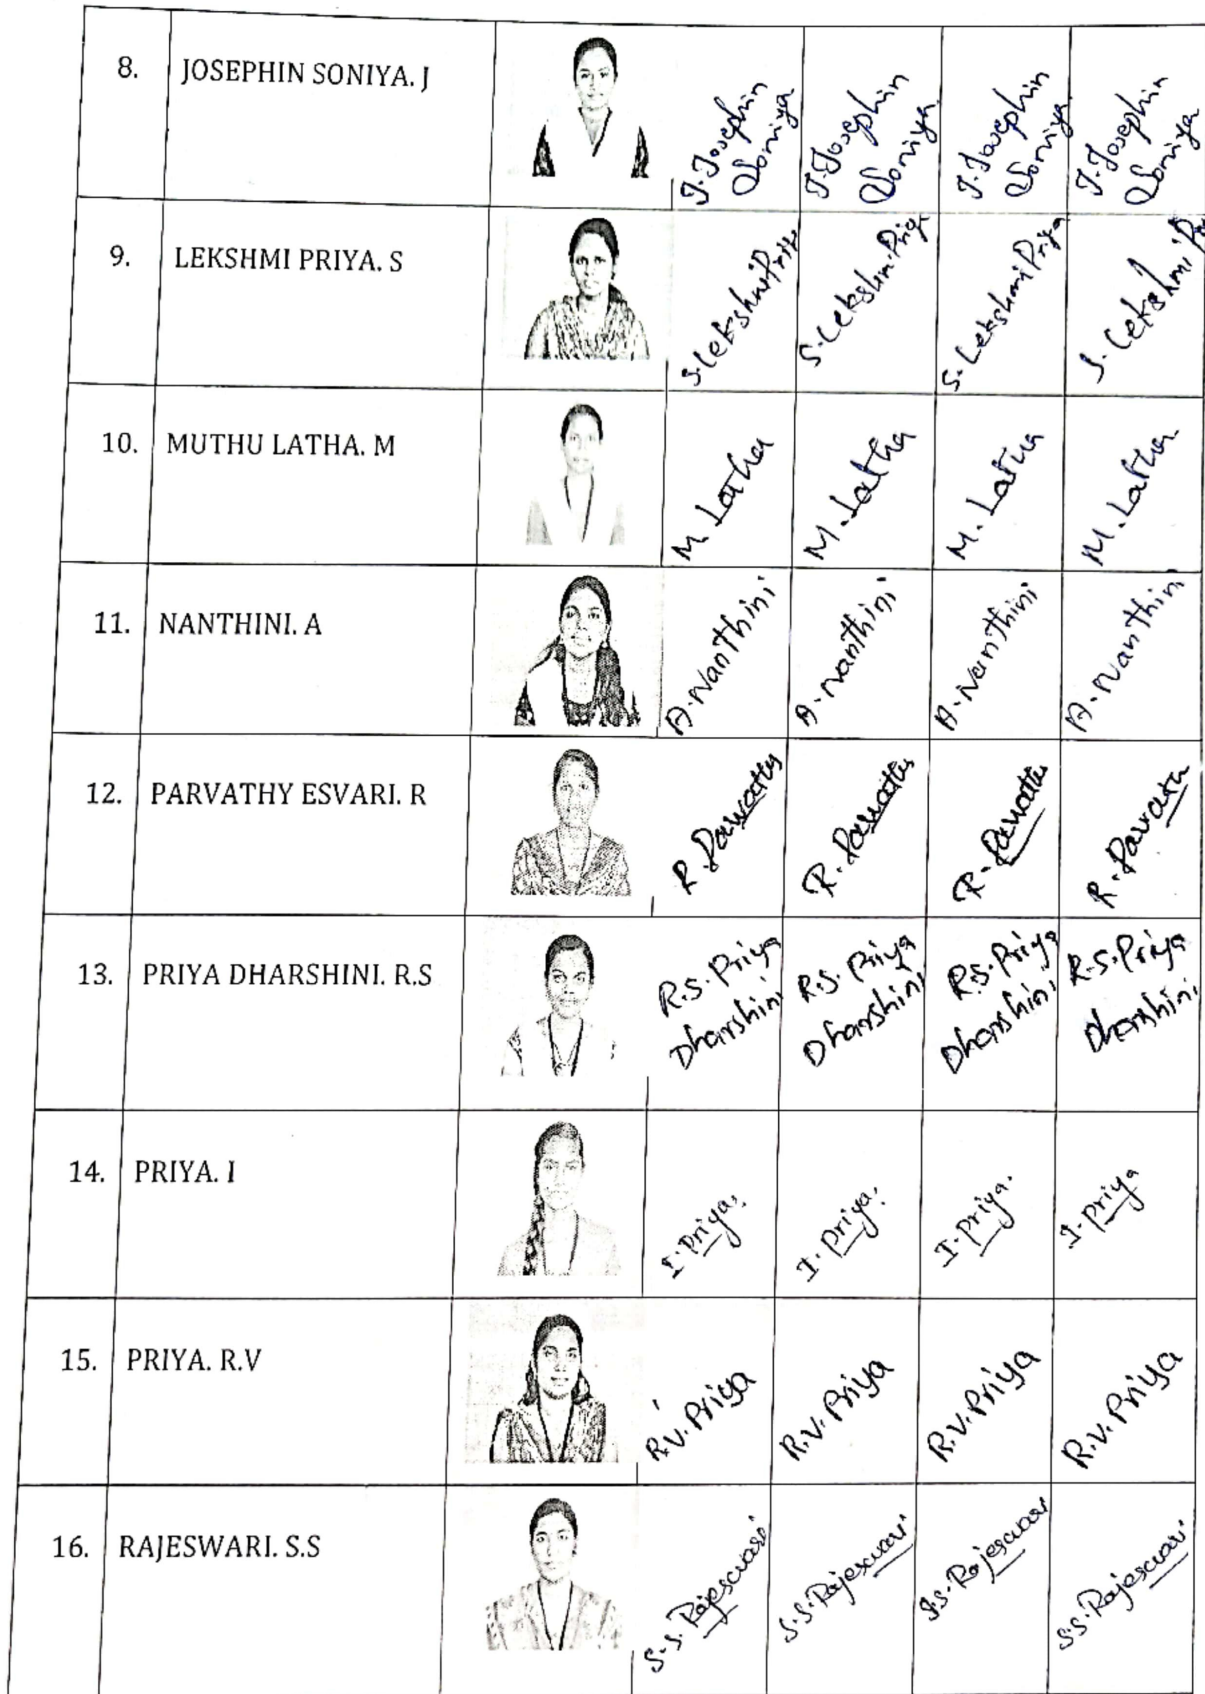 8. JOSEPHIN SONIYA. J
J. Josephin
Soniya
J. Josephin
Soniya
J. Josephin
Soniya
J. Josephin
Soniya
9. LEKSHMI PRIYA. S
S. Lekshmi Priya
S. Lekshmi Priya
S. Lekshmi Priya
S. Lekshmi
10. MUTHU LATHA. M
M. Latha
M. Latha
M. Latha
M. Latha
11. NANTHINI. A
A. Nanthini
A. Nanthini
A. Nanthini
A. Nanthini
12. PARVATHY ESVARI. R
R. Parvathy
R. Parvathy
R. Parvathy
R.
13. PRIYA DHARSHINI. R.S
R.S. Priya
Dharshini
R.S. Priya
Dharshini
R.S. Priya
Dharshini
R.S. Priya
Dharshini
14. PRIYA. I
I. Priya
I. Priya
I. Priya.
I. Priya
15. PRIYA. R.V
R.V. Priya
R.V. Priya
R.V. Priya
R.V. Priya
16. RAJESWARI. S.S
S.S. Rajeswari
S.S. Rajeswari
S.S. Rajeswari
S.S. Rajeswari